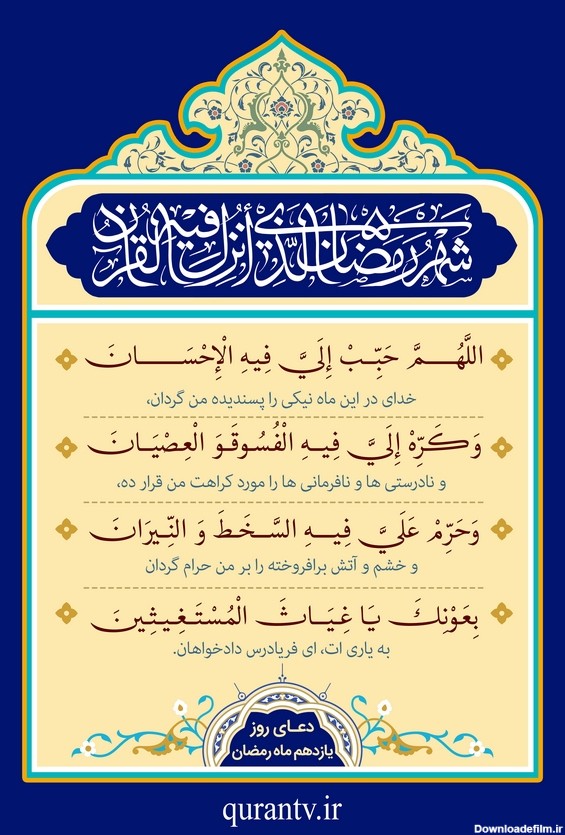 شَهْرُ رَمَضَانَ الَّذِي أُنْزِلَ فِيهِ الْقُرْآنُ
اللَّهُمَّ حَبِّبْ إِلَيَّ فِيهِ الْإِحْسَانَ
خدای در این ماه نیکی را پسندیده من گردان،
وَ كَرِّهْ إِلَيَّ فِيهِ الْفُسُوقَ وَ الْعِصْيَانَ
و نادرستی ها و نافرمانی ها را مورد کراهت من قرار ده،
وَ حَرِّمْ عَلَيَّ فِيهِ السَّخَطَ وَ النِّيرَانَ
و خشم و آتش برافروخته را بر من حرام گردان
بِعَوْنِكَ يَا غِيَاثَ الْمُسْتَغِيثِينَ
به یاری ات، ای فریادرس دادخواهان.
دعای روز
یازدهم ماه رمضان
qurantv.ir
Downloadefilm.ir